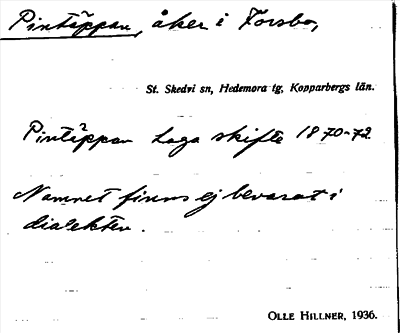 Pintäppan, åker i Forsbo,
St. Skedvi sn, Hedemora tg, Kopparbergs län.
Pintäppan Laga skifte 1870-72
Namnet finns ej bevarat i
dialekten.
OLLE HILLNER, 1936.